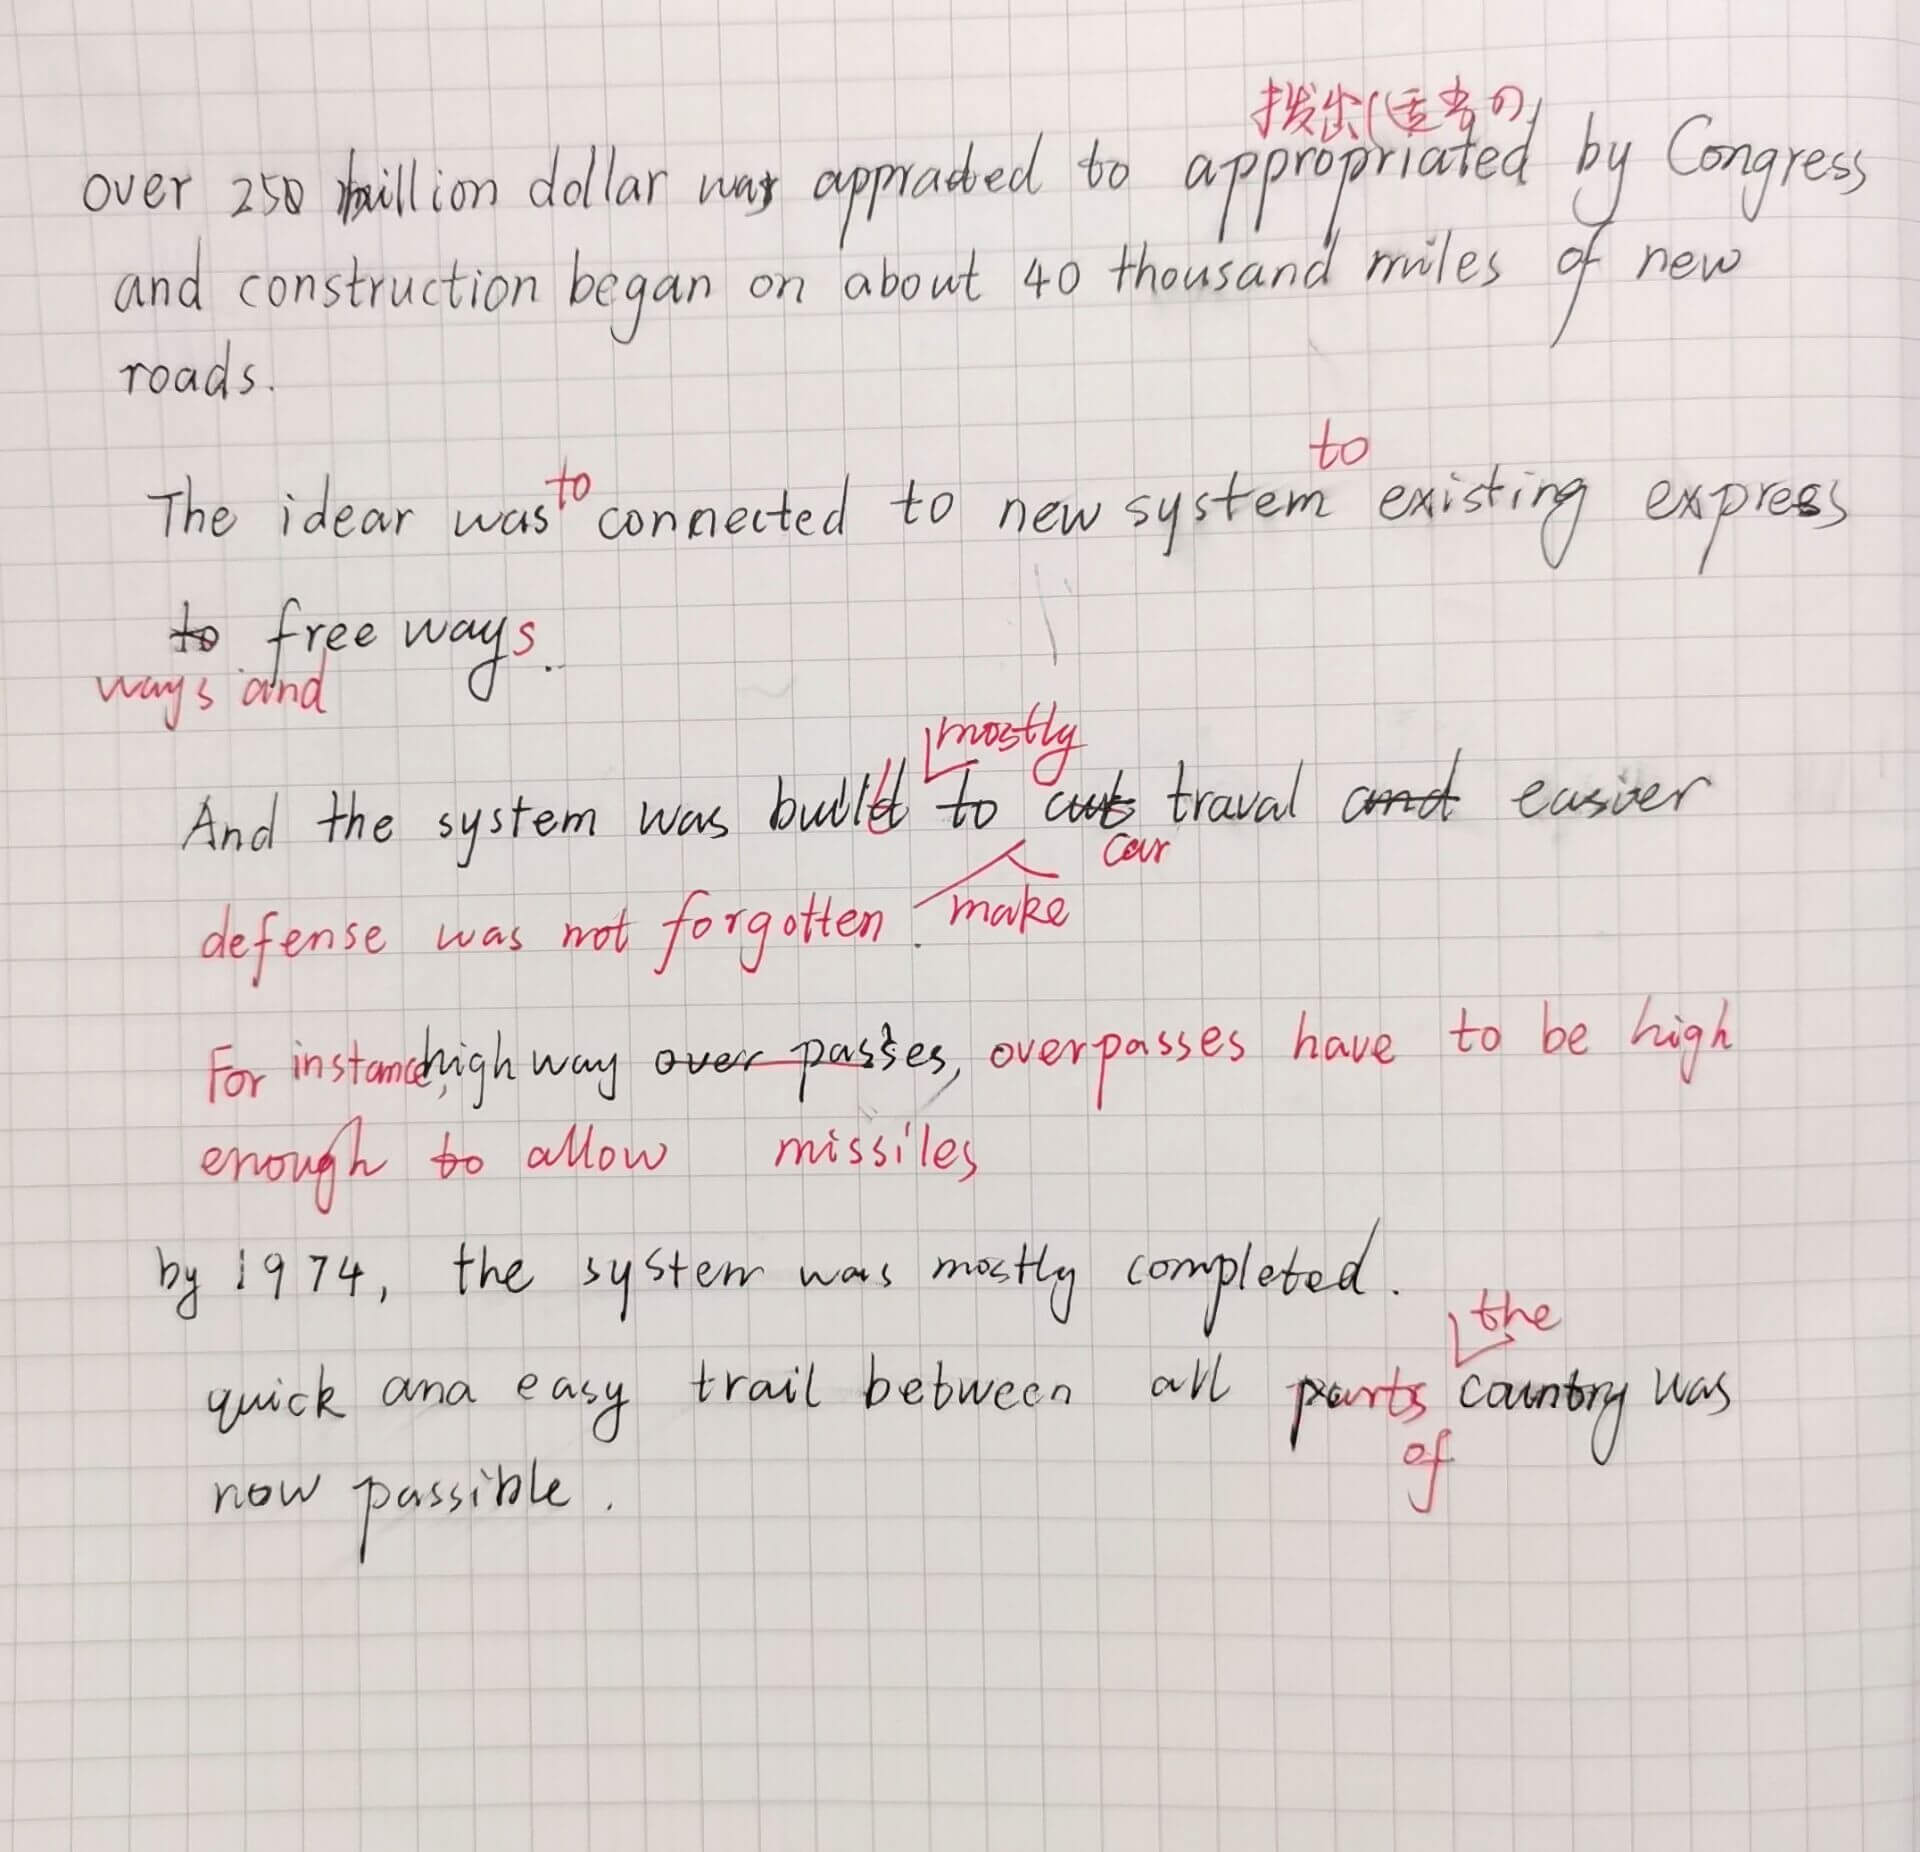 拨出(适当的)
over 250 billion dollar was appraated to appropriated by Congress
and construction began on about 40 thousand miles of new
roads.
to
The idear was to connected to new system existing express
to free ways.
ways and
mostly
And the system was build to cut traval and easier
car
defense was not forgotten. make
For instance, high way over passes, overpasses have to be high
enough to allow missiles
by 1974, the system was mostly completed.
the
quick ana easy trail between all parts country was
of
now passible.